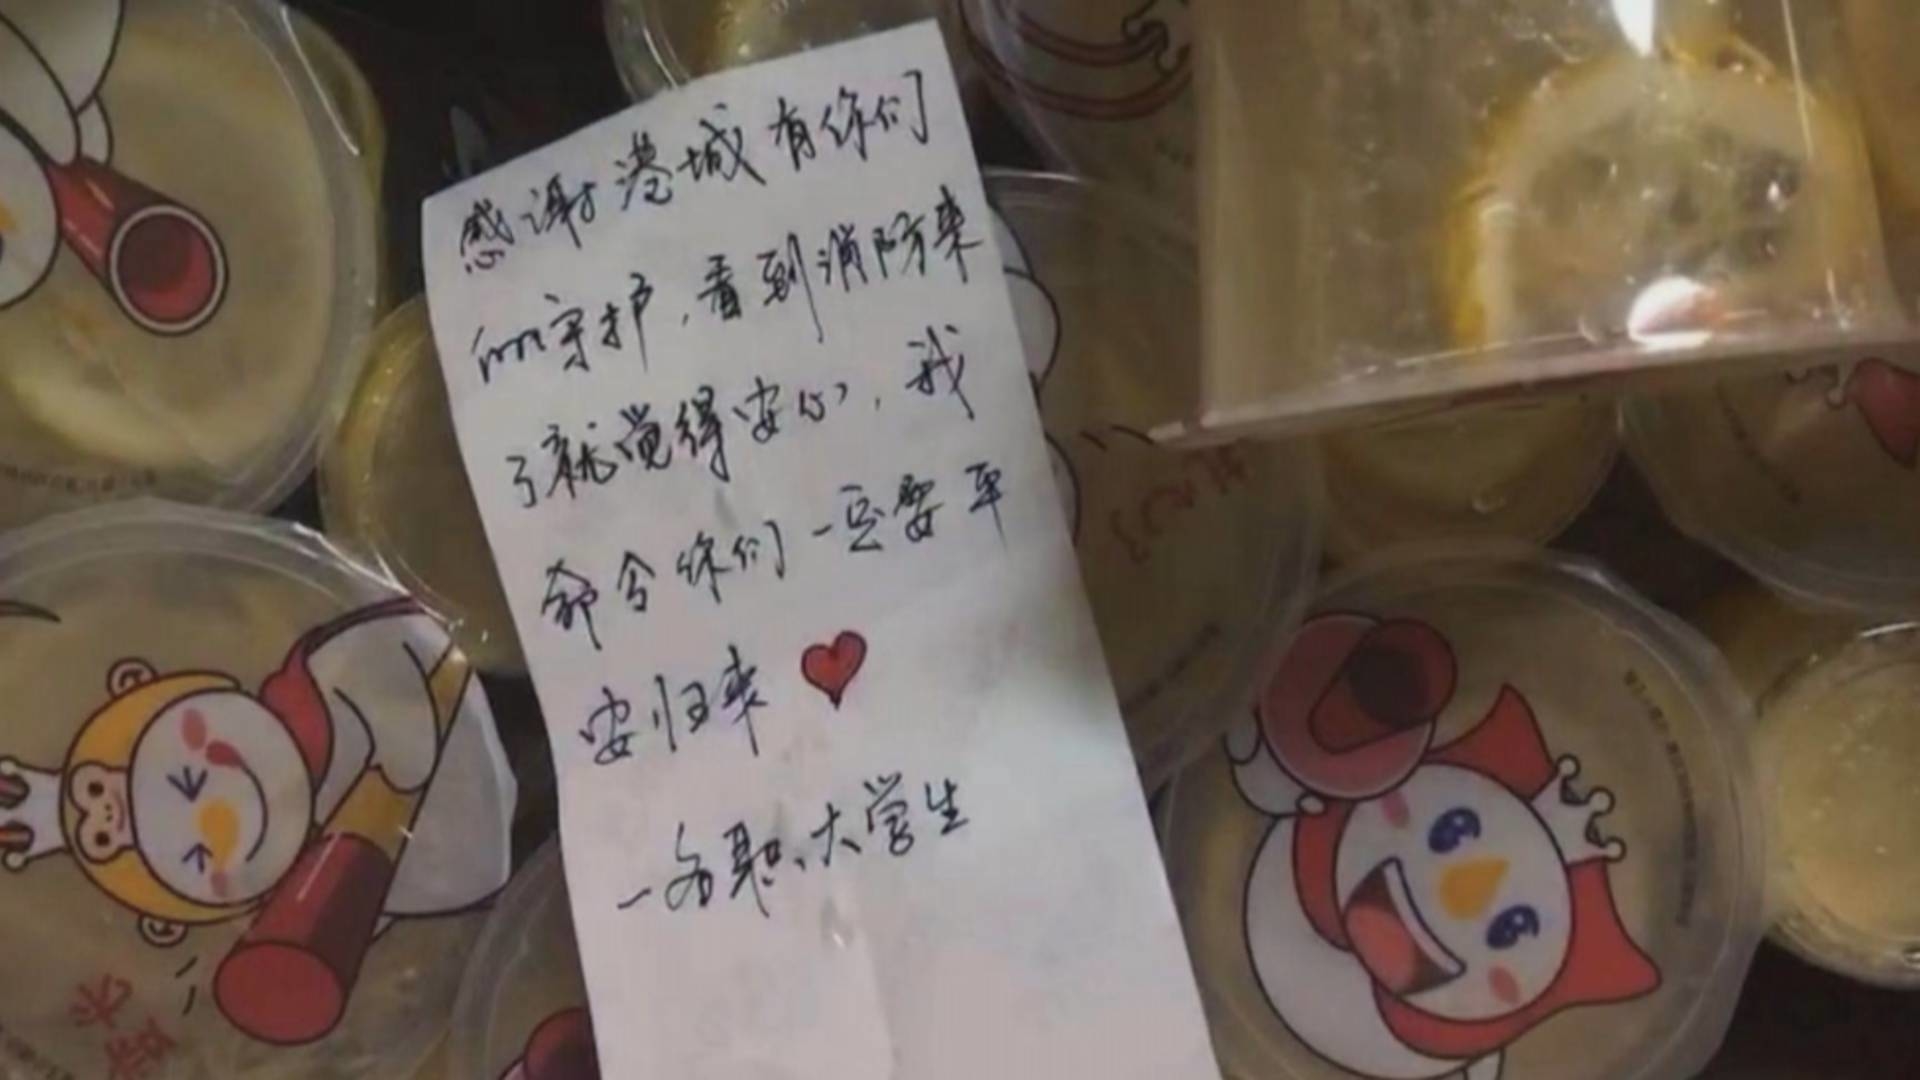 感谢港城有你们
的守护,看到消防来
了就觉得安心,我
命令你们一定要平
安归来
一名职大学生